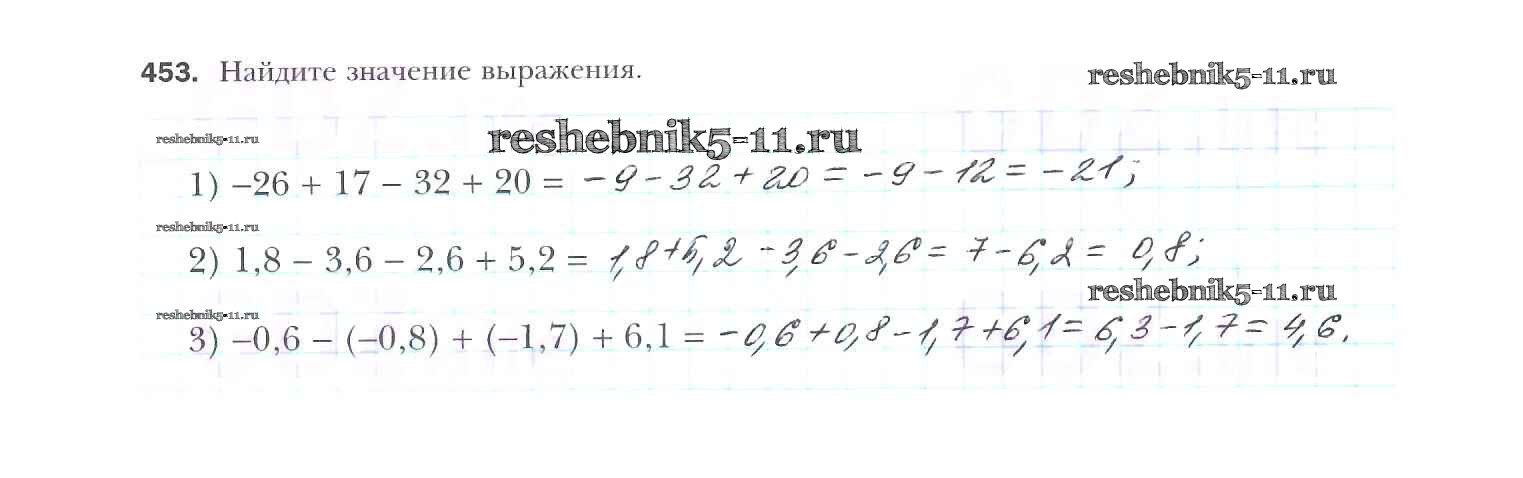 453. Найдите значение выражения.
reshebnik5-11.ru
reshebnik5-11.ru
reshebnik5-11.ru
1) –26 + 17 – 32 + 20 = -9-32+20 = -9-12 = -21;
reshebnik5-11.ru
2) 1,8 – 3,6 – 2,6 + 5,2 = 1,8+5,2 -3,6-2,6 = 7-6,2 = 0,8;
reshebnik5-11.ru
reshebnik5-11.ru
3) –0,6 – (–0,8) + (–1,7) + 6,1 = -0,6+0,8-1,7+6,1= 6,3-1,7= 4,6.